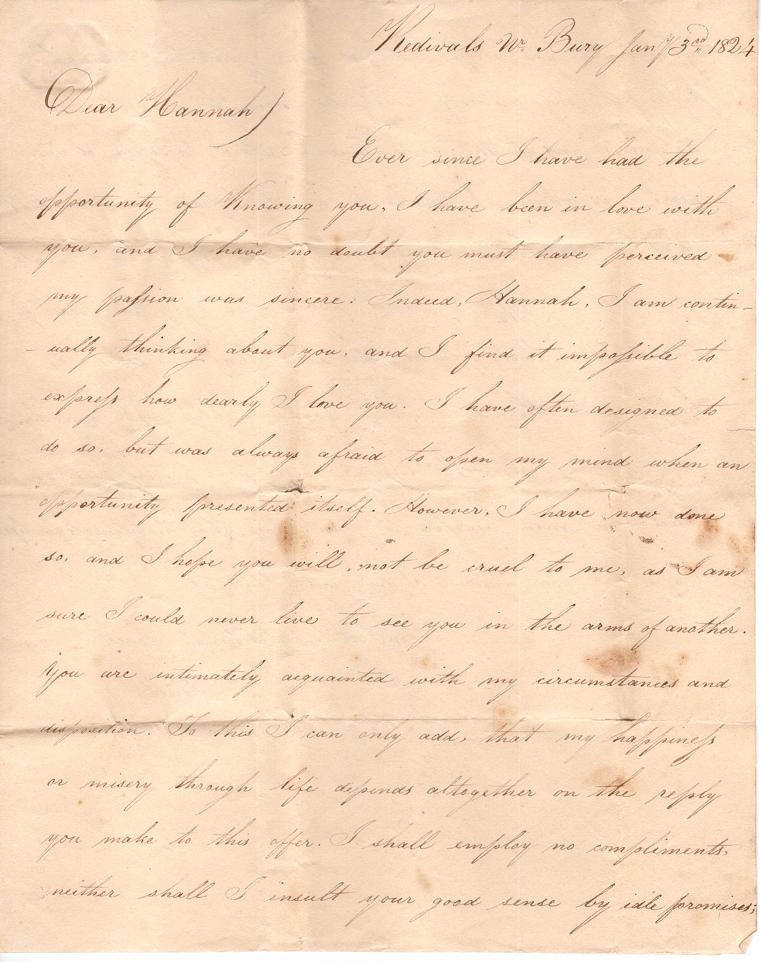 Redivals Nr. Bury Jany 3rd 1824
(Dear Hannah)
Ever since I have had the
opportunity of Knowing you, I have been in love with
you, and I have no doubt you must have perceived
my paſsion was sincere: Indeed, Hannah, I am contin-
-ually thinking about you, and I find it impoſsible to
expreſs how dearly I love you. I have often designed to
do so, but was always afraid to open my mind when an
opportunity presented itself. However, I have now done
so, and I hope you will, not be cruel to me, as I am
sure I could never live to see you in the arms of another.
You are intimately acquainted with my circumstances and
disposition. To this I can only add, that my happineſs
or misery through life depends altogether on the reply
you make to this offer. I shall employ no compliments,
neither shall I insult your good sense by idle promises;